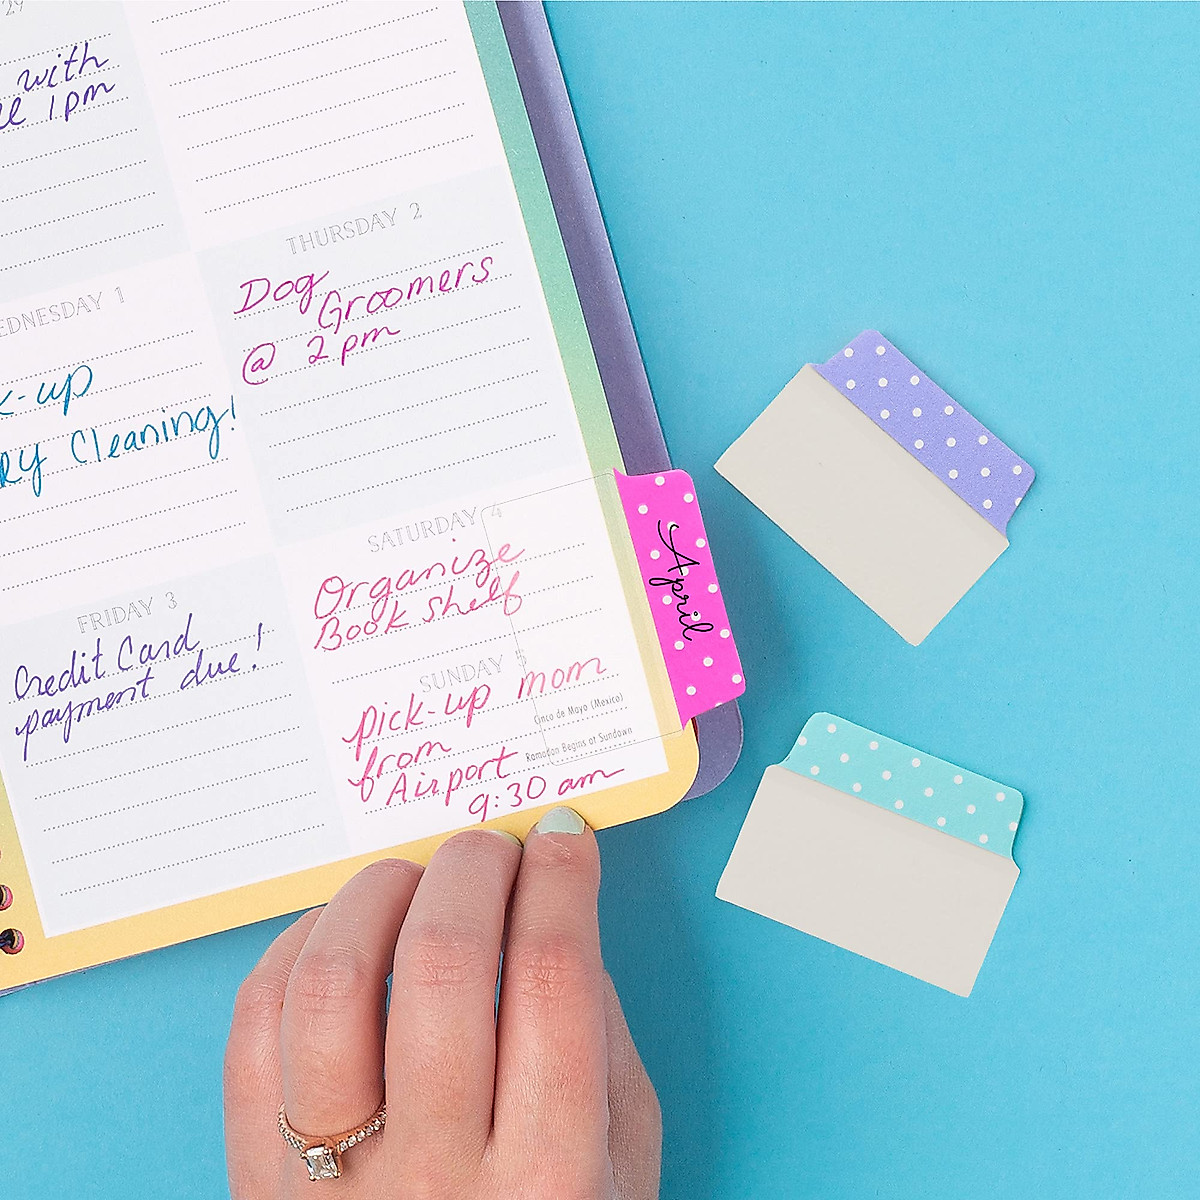 29
with
1pm
THURSDAY 2
Dog
Groomers
@ 2pm
1
-up
Cleaning!
FRIDAY 3
Credit Card
payment due!
SATURDAY 4
Organize
Book shelf
SUNDAY 5
pick-up mom
from
Airport
9:30 am
Cinco de Mayo (Mexico)
Ramadan Begins at Sundown
April